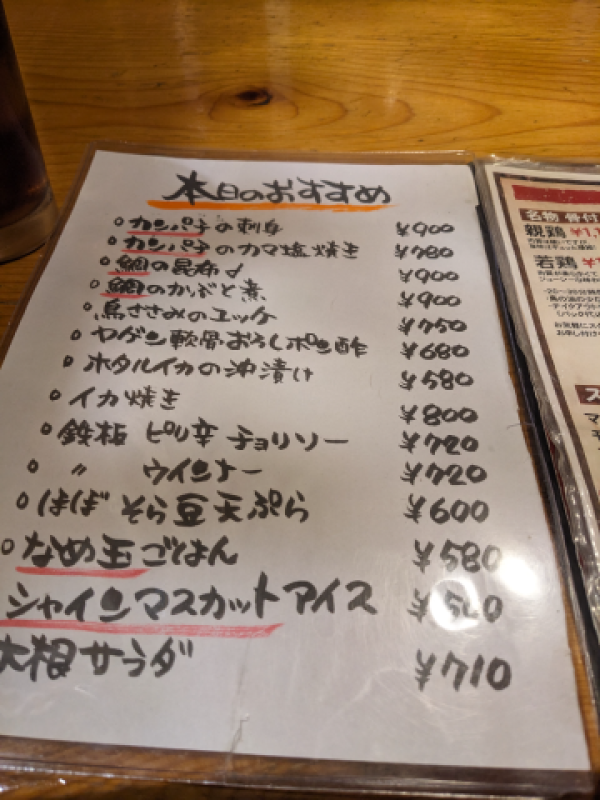 本日のおすすめ
○カンパチの刺身 ¥900
○カンパチのカマ塩焼き ¥780
○鯛の昆布〆 ¥900
○鯛のかぶと煮 ¥900
○鳥ささみのユッケ ¥750
○ヤゲン軟骨おろしポン酢 ¥680
○ホタルイカの沖漬け ¥580
○イカ焼き ¥800
○鉄板 ピリ辛 チョリソー ¥720
○ 〃 ウインナー ¥720
○ほぼ そら豆天ぷら ¥600
○なめ玉ごはん ¥580
シャインマスカットアイス
大根サラダ ¥710
名物 骨付
親鶏
若鶏